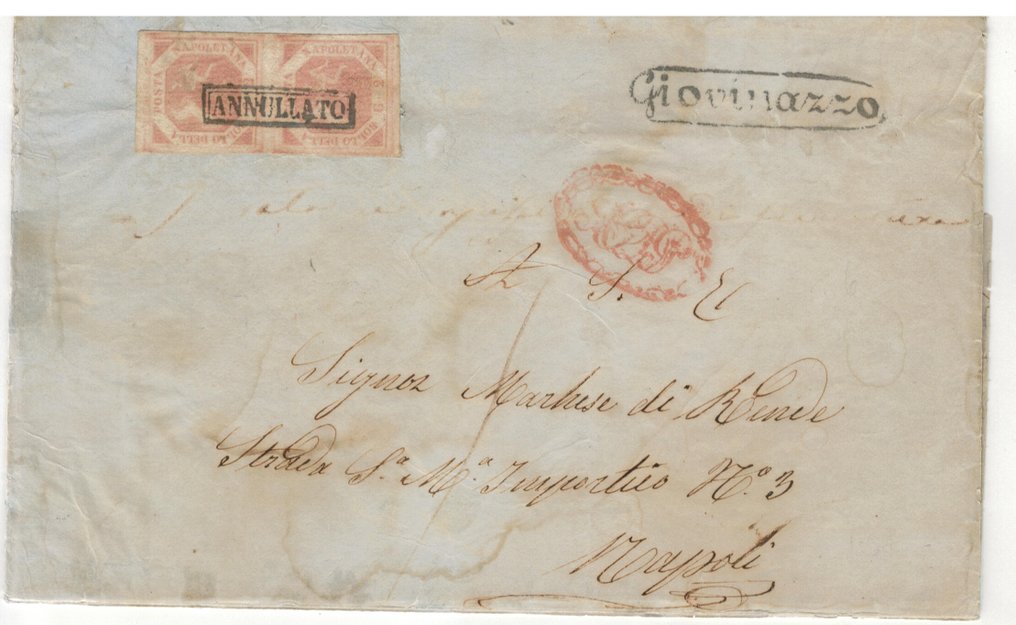 POSTA NAPOLETANA BOLLO DELLA
NAPOLETANA BOLLO DELLA G. 2
ANNULLATO
Giovinazzo
A S. E
Signor Marchese di Rende
Strada S.ª M.ª Inportico N.º 3
Napoli